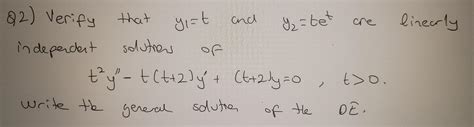 Q2) Verify that y₁=t and y₂=teᵗ are linearly
independent solutions of
t²y''-t(t+2)y'+(t+2)y=0 , t>0.
Write the general solution of the DE.